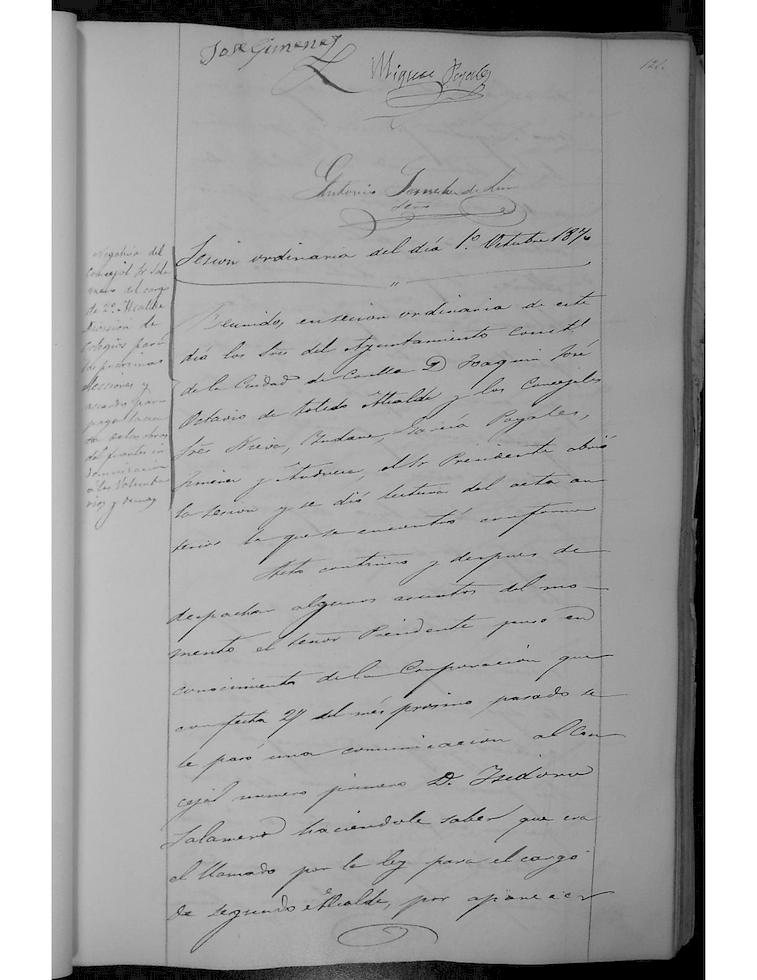 Jose Gimenez
Miguel Poyales
121.
Antonio
Sesion ordinaria del día 1º Octubre 1870
Negativa del
Concejal Sr Sala
mero del cargo
de 2º Alcalde
Division de
Colegios para
las proximas
elecciones y
acuerdo para
pago
de las obras
del fuerte, in
demnizacion
a los Volunta
rios y demas
Reunidos en sesion ordinaria de este
día los Sres del Ayuntamiento Constl
de la Ciudad de D Joaquin José
Octavio de Toledo Alcalde y los Concejales
Sres Nieva, García Poyales,
Jimenez y Andreu, el Sr Presidente abrió
la sesion y se dió lectura del acta an
terior la que se encontró conforme
Acto continuo y despues de
despachar algunos asuntos del mo-
mento el señor Presidente puso en
conocimiento de la Corporacion que
con fecha 27 del més proximo pasado se
le pasó una comunicacion al Con
cejal numero primero D. Isidoro
Salamero haciendole saber que era
el llamado por la ley para el cargo
de segundo Alcalde, por aparecer